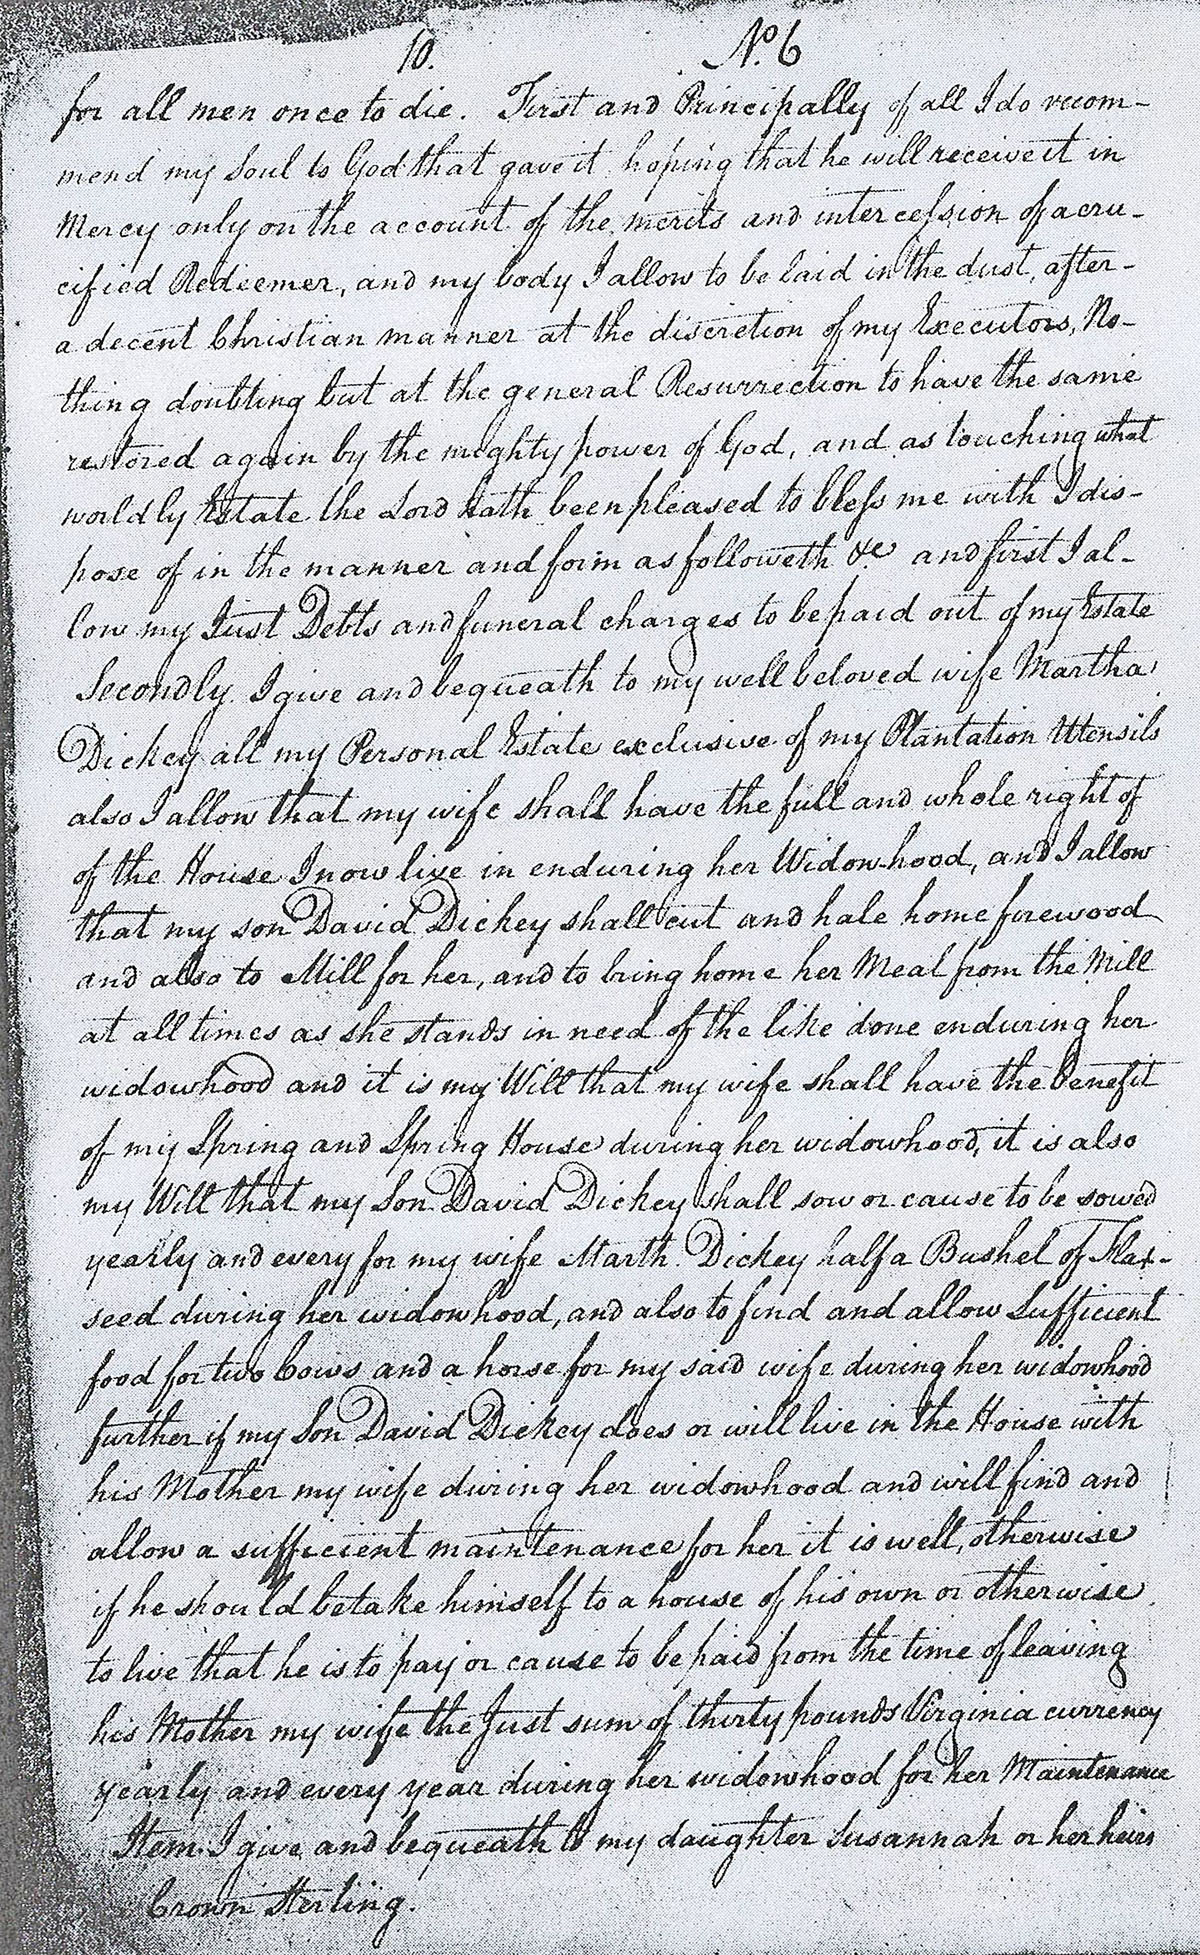 10. No. 6
for all men once to die. First and Principally of all I do recom-
mend my Soul to God that gave it hoping that he will receive it in
Mercy only on the account of the merits and intercession of a cru-
cified Redeemer, and my body I allow to be laid in the dust, after-
a decent Christian manner at the discretion of my Executors, No-
thing doubting but at the general Resurrection to have the same
restored again by the mighty power of God, and as touching what
worldly Estate the Lord hath been pleased to bless me with I dis-
pose of in the manner and form as followeth &c and first I al-
low my Just Debts and funeral charges to be paid out of my Estate
Secondly I give and bequeath to my well beloved wife Martha
Dickey all my Personal Estate exclusive of my Plantation Utensils
also I allow that my wife shall have the full and whole right of
of the House I now live in enduring her Widowhood, and I allow
that my son David Dickey shall cut and hale home firewood
and also to Mill for her, and to bring home her Meal from the Mill
at all times as she stands in need of the like done enduring her
widowhood and it is my Will that my wife shall have the benefit
of my Spring and Spring House during her widowhood, it is also
my Will that my Son David Dickey shall sow or cause to be sowed
yearly and every for my wife Marth. Dickey half a Bushel of Flax-
seed during her widowhood, and also to find and allow Sufficient
food for two Cows and a horse for my said wife during her widowhood
further if my Son David Dickey does or will live in the House with
his Mother my wife during her widowhood and will find and
allow a sufficient maintenance for her it is well, otherwise
if he should betake himself to a house of his own or otherwise
to live that he is to pay or cause to be paid from the time of leaving
his Mother my wife the Just sum of thirty pounds Virginia currency
yearly and every year during her widowhood for her Maintenance
Item. I give and bequeath to my daughter Susannah or her heirs
Crown Sterling.